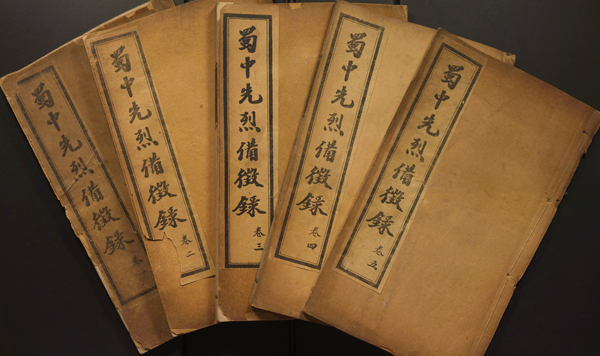 蜀中先烈備徵錄 卷
蜀中先烈備徵錄 卷二
蜀中先烈備徵錄 卷三
蜀中先烈備徵錄 卷四
蜀中先烈備徵錄 卷五